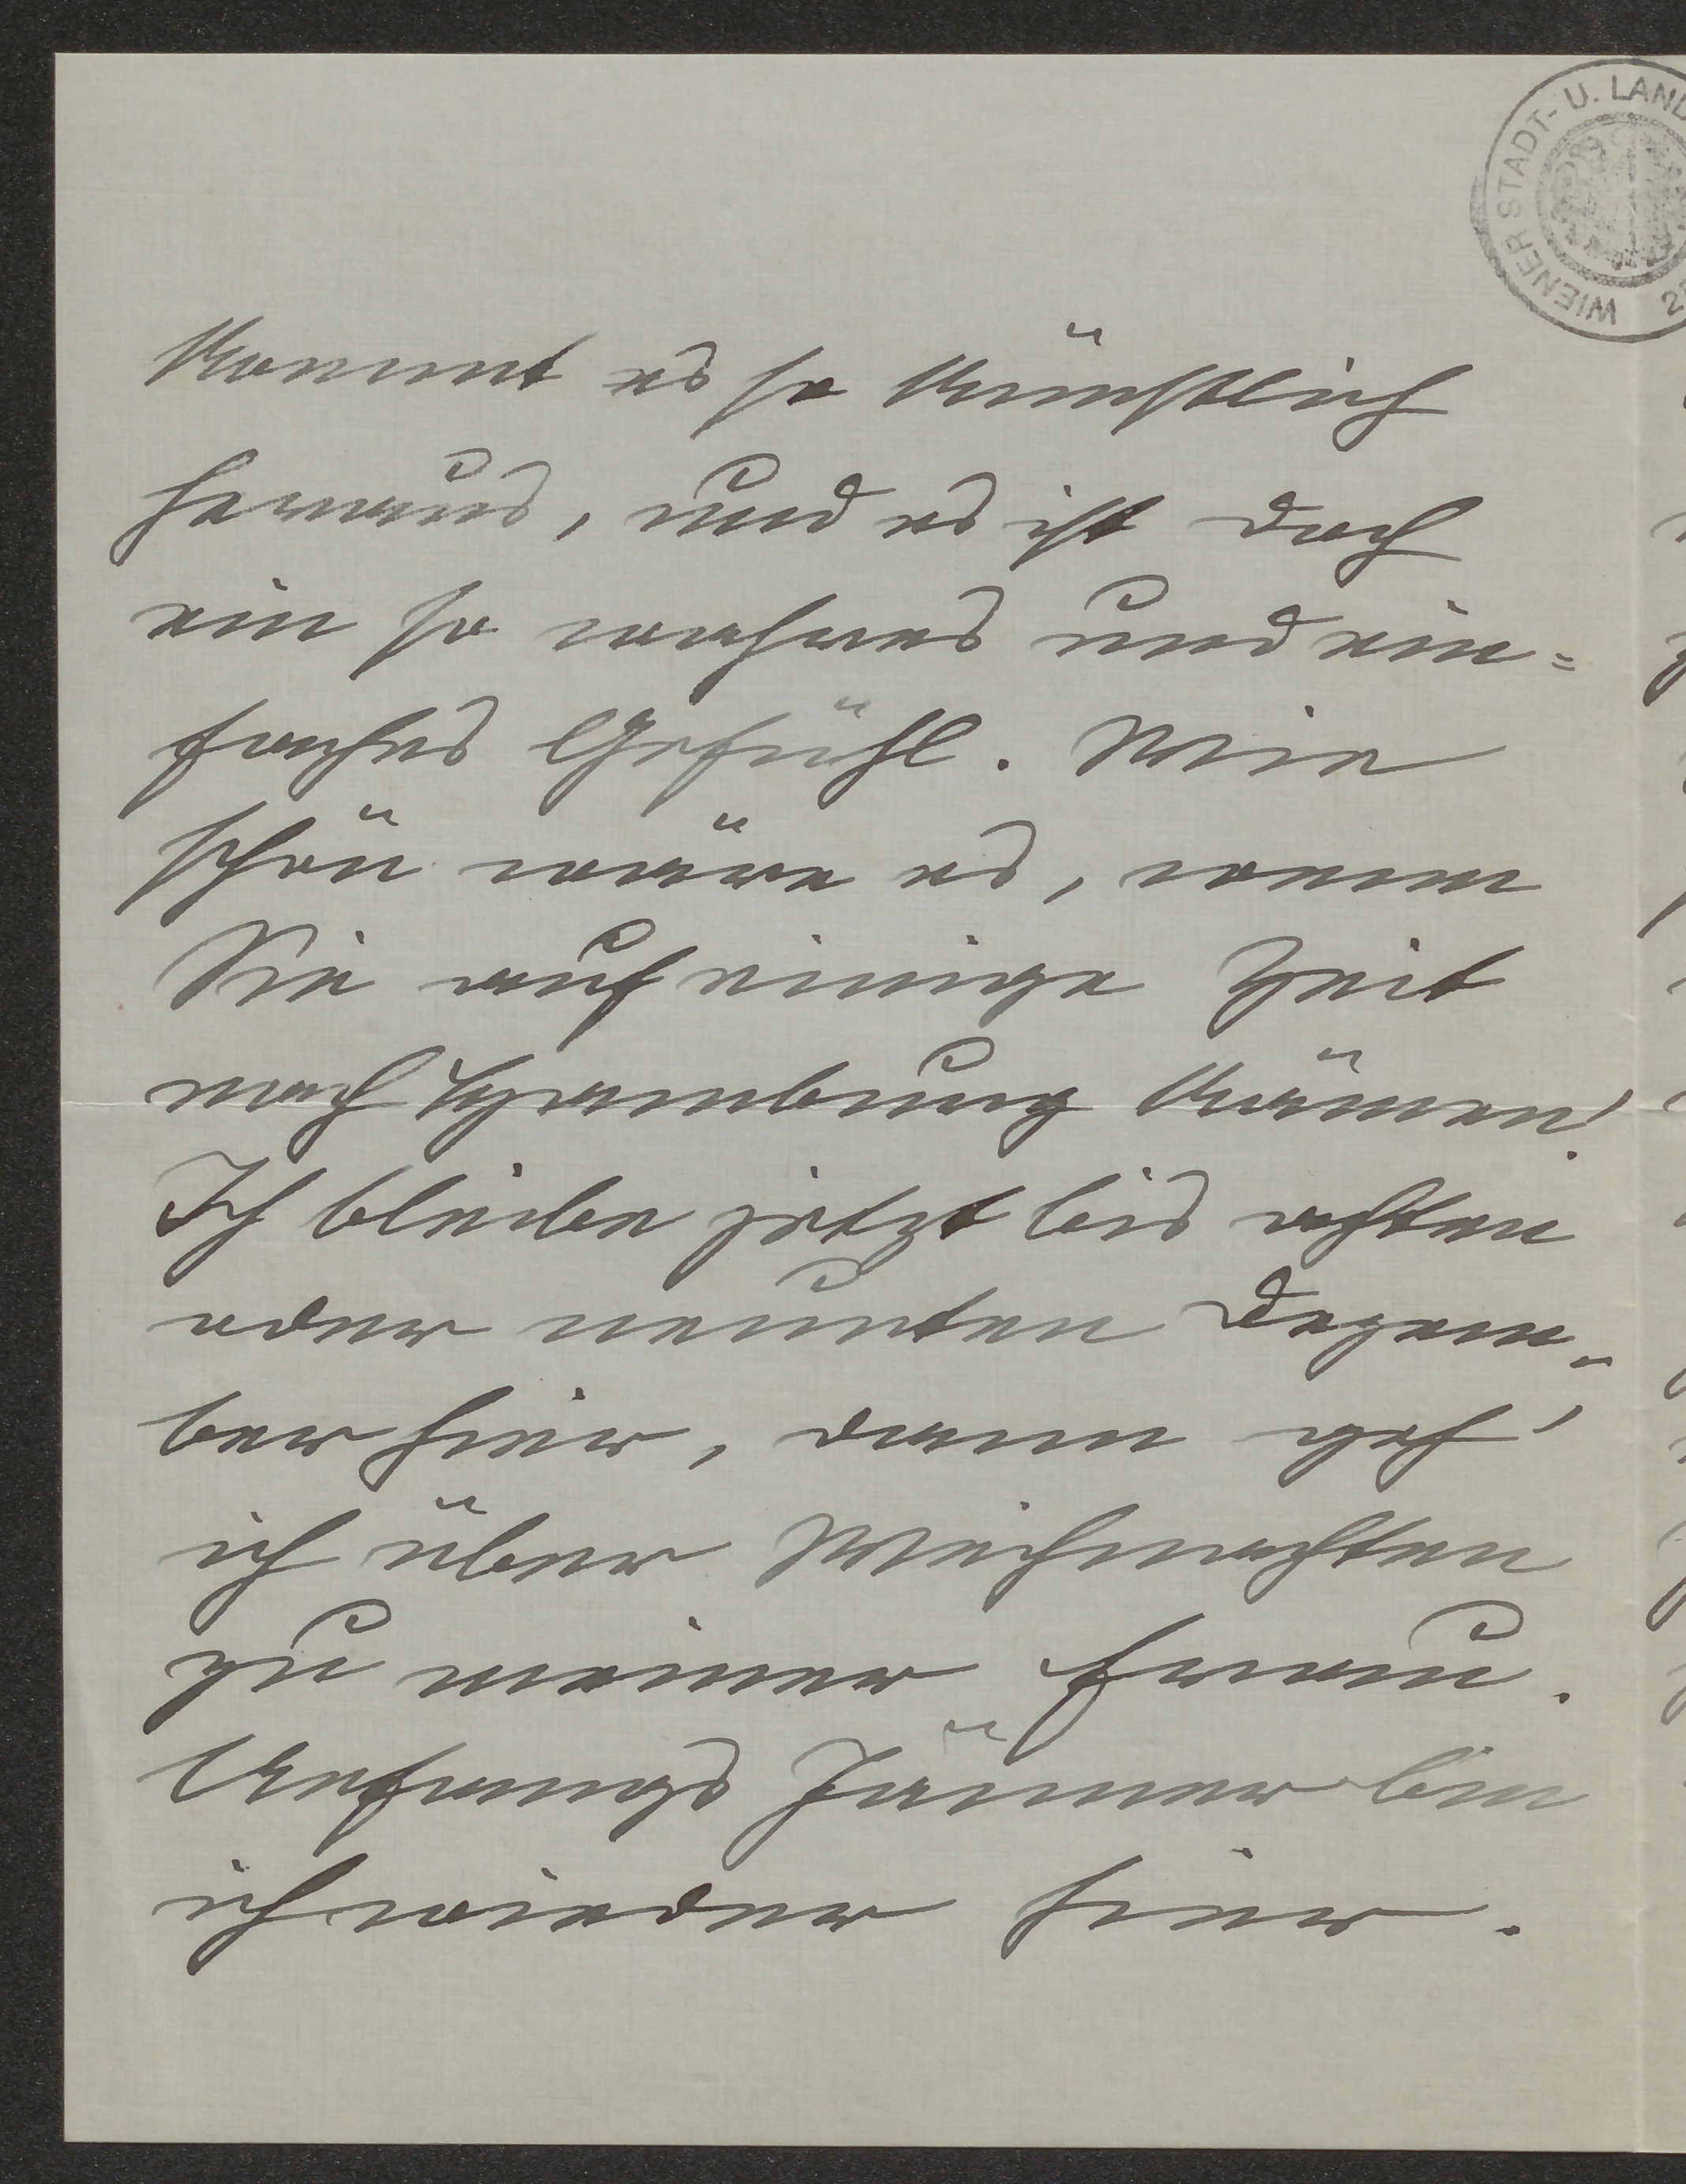 WIENER STADT- U. LAND
kommt es so künstlich
heraus, und es ist doch
ein so wahres und ein=
faches Gefühl. Wie
schön wäre es, wenn
Sie auf einige Zeit
nach Hamburg kämen!
Ich bleibe jetzt bis achten
oder neunten Dezem=
ber hier, dann geh'
ich über Weihnachten
zu meiner Frau.
Anfangs Jänner bin
ich wieder hier.